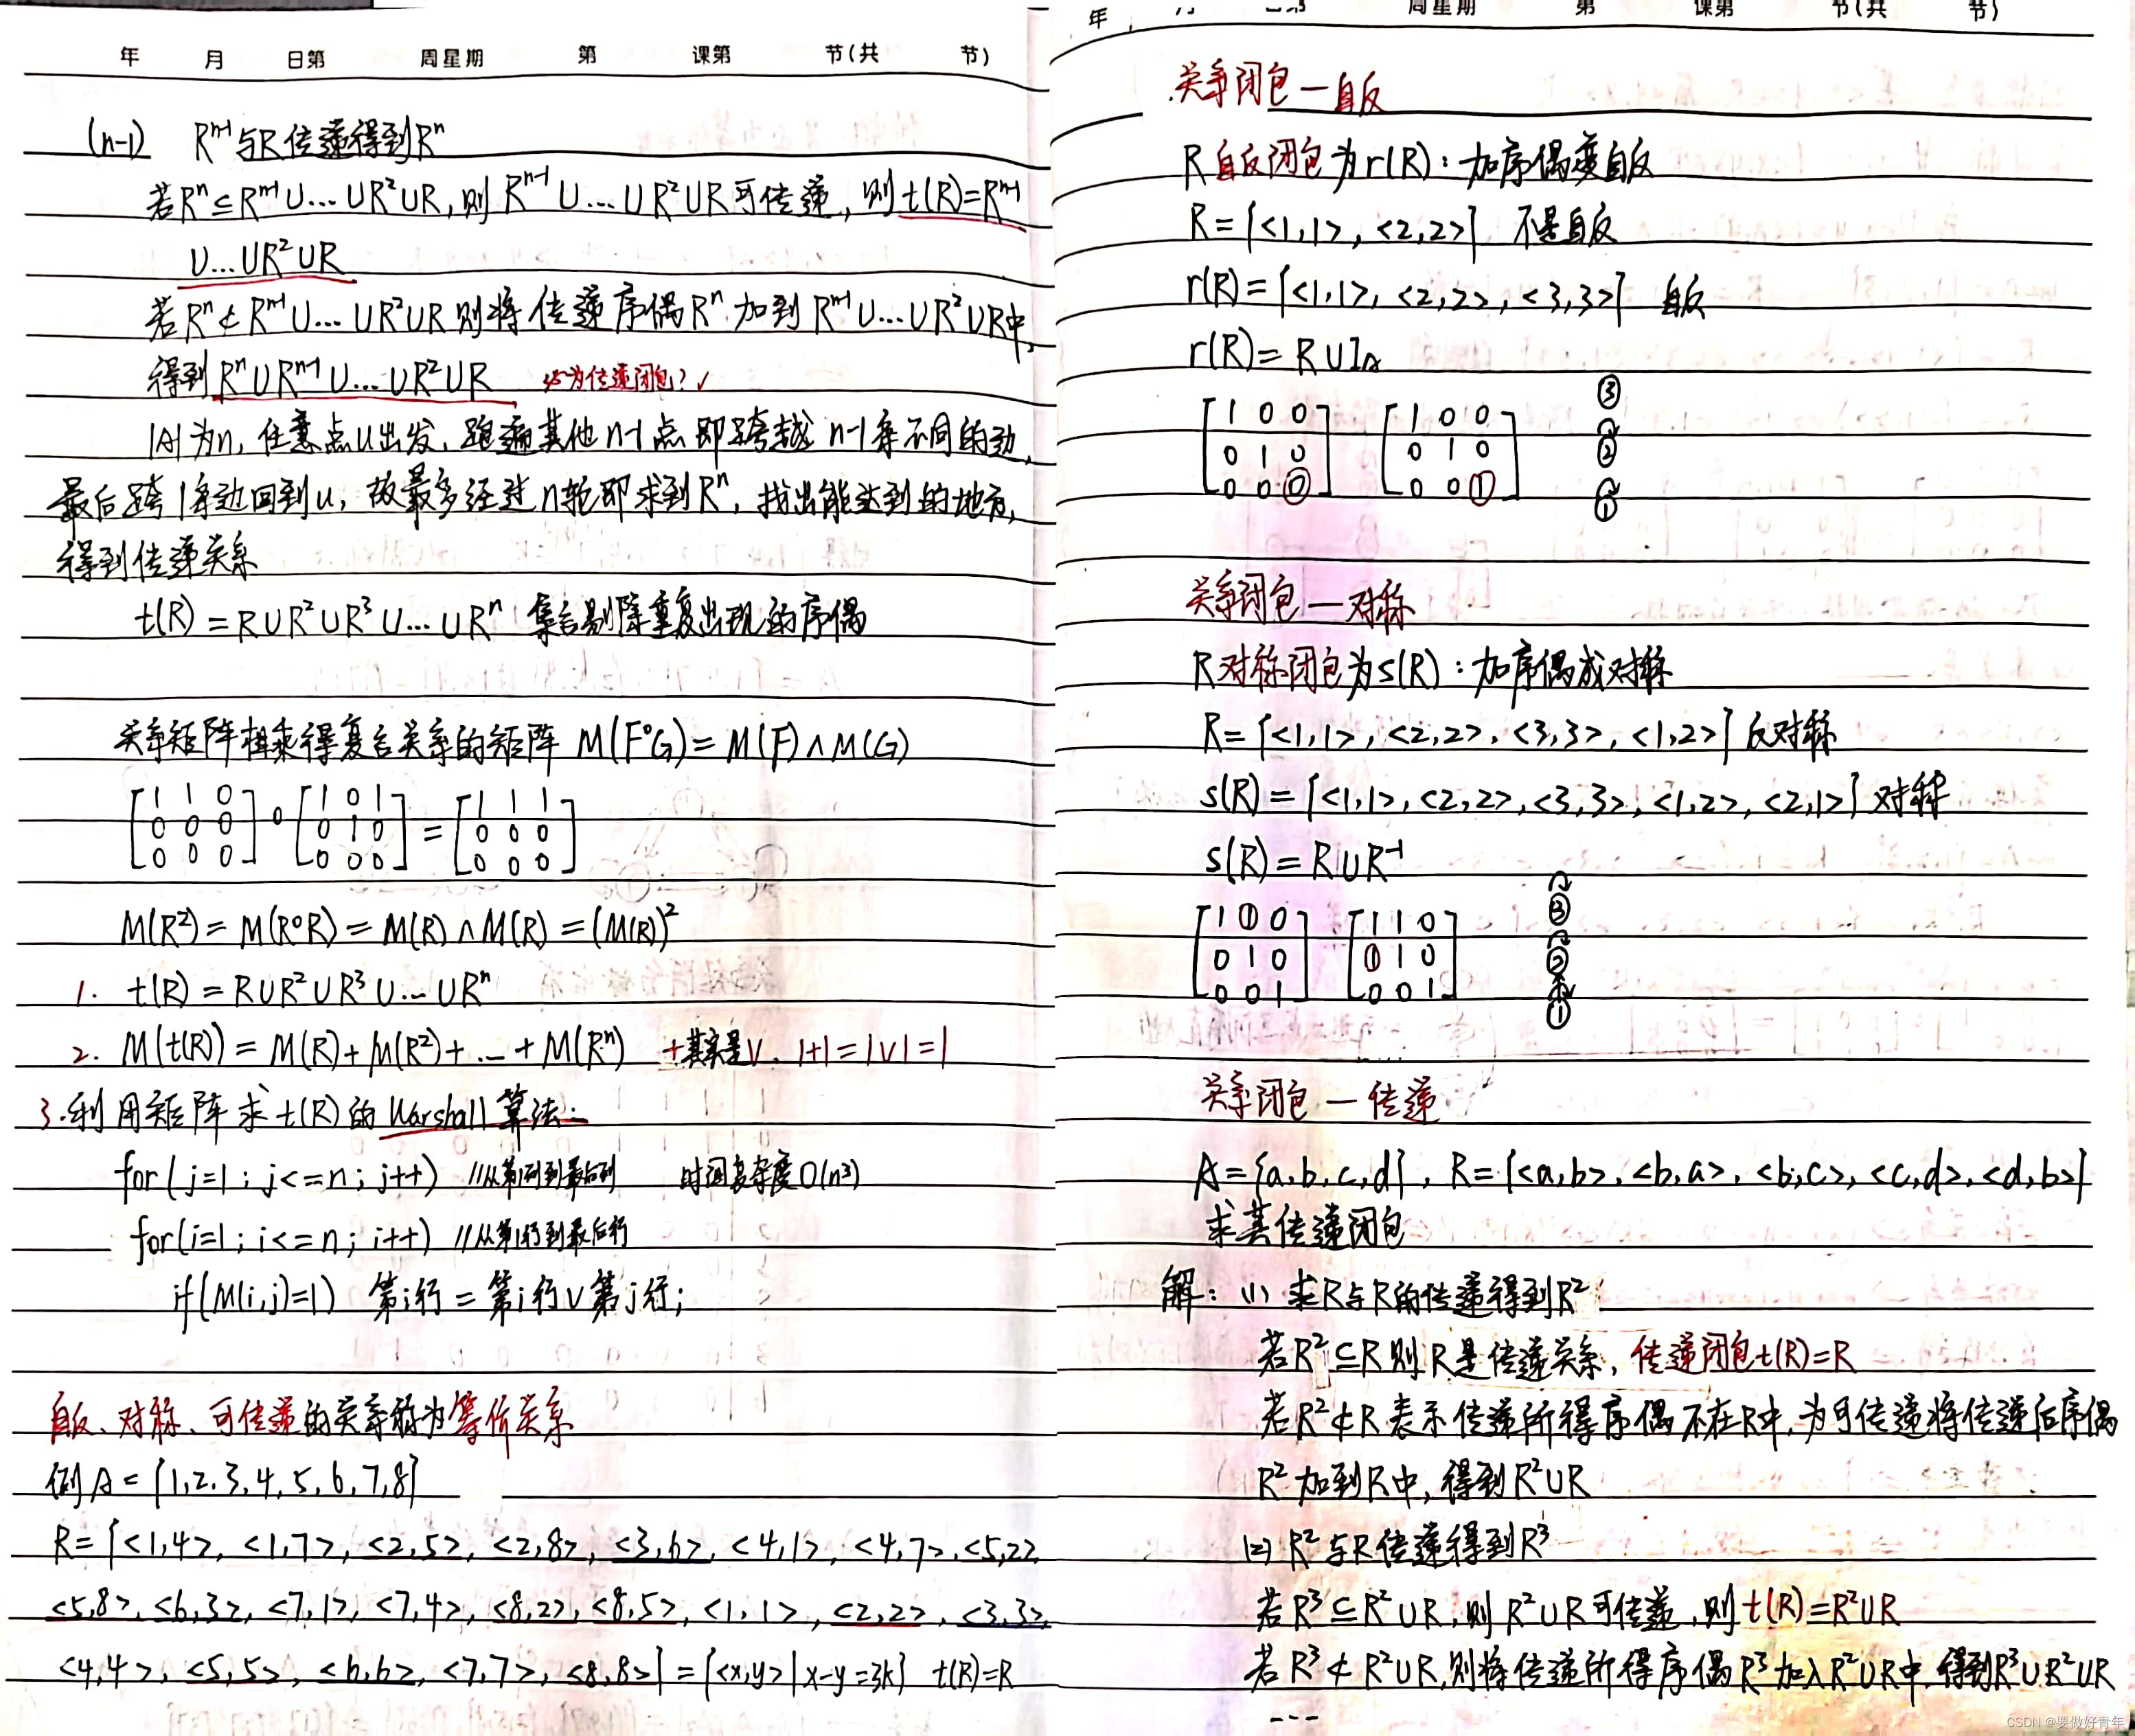 年 月 日第 周星期 第 课第 节(共 节)
(n-1) Rⁿ⁻¹与R传递得到Rⁿ
若Rⁿ⊆Rⁿ⁻¹∪…∪R²∪R,则Rⁿ⁻¹∪…∪R²∪R可传递,则t(R)=Rⁿ⁻¹
∪…∪R²∪R
若Rⁿ⊄Rⁿ⁻¹∪…∪R²∪R则将传递序偶Rⁿ加到Rⁿ⁻¹∪…∪R²∪R中,
得到Rⁿ∪Rⁿ⁻¹∪…∪R²∪R 必为传递闭包?✓
|A|为n,任意点u出发,跑遍其他n-1点即跨越n-1条不同的边,
最后跨1条边回到u,故最多经过n轮即求到Rⁿ,找出能达到的地方,
得到传递关系
t(R)=R∪R²∪R³∪…∪Rⁿ 集合剔除重复出现的序偶
关系矩阵相乘得复合关系的矩阵 M(F°G)=M(F)∧M(G)
[1 1 0] [1 0 1] [1 1 1]
[0 0 0] ∘ [0 1 0] = [0 0 0]
[0 0 0] [0 0 0] [0 0 0]
M(R²)=M(R°R)=M(R)∧M(R)=(M(R))²
1. t(R)=R∪R²∪R³∪…∪Rⁿ
2. M(t(R))=M(R)+M(R²)+…+M(Rⁿ) +其实是∨,1+1=1∨1=1
3.利用矩阵求t(R)的Warshall算法:
for(j=1;j<=n;j++) //从第1列到最后列 时间复杂度O(n³)
for(i=1;i<=n;i++) //从第1行到最后行
if(M(i,j)=1) 第i行=第i行∨第j行;
自反、对称、可传递的关系称为等价关系
例A={1,2,3,4,5,6,7,8}
R={<1,4>,<1,7>,<2,5>,<2,8>,<3,6>,<4,1>,<4,7>,<5,2>,
<5,8>,<6,3>,<7,1>,<7,4>,<8,2>,<8,5>,<1,1>,<2,2>,<3,3>,
<4,4>,<5,5>,<6,6>,<7,7>,<8,8>}={<x,y>|x-y=3k} t(R)=R
年 月 日第 周星期 第 课第 节(共 节)
关系闭包一自反
R自反闭包为r(R):加序偶变自反
R={<1,1>,<2,2>} 不是自反
r(R)={<1,1>,<2,2>,<3,3>} 自反
r(R)=R∪I_A
[1 0 0] [1 0 0] ③
[0 1 0] [0 1 0] ②
[0 0 0] [0 0 1] ①
关系闭包一对称
R对称闭包为s(R):加序偶成对称
R={<1,1>,<2,2>,<3,3>,<1,2>}反对称
s(R)={<1,1>,<2,2>,<3,3>,<1,2>,<2,1>}对称
s(R)=R∪R⁻¹
[1 1 0] [1 1 0] ③
[0 1 0] [1 1 0] ②
[0 0 1] [0 0 1] ①
关系闭包一传递
A={a,b,c,d},R={<a,b>,<b,a>,<b,c>,<c,d>,<d,b>}
求其传递闭包
解:(1)求R与R的传递得到R²
若R²⊆R则R是传递关系,传递闭包t(R)=R
若R²⊄R表示传递所得序偶不在R中,为可传递将传递后序偶
R²加到R中,得到R²∪R
(2)R²与R传递得到R³
若R³⊆R²∪R,则R²∪R可传递,则t(R)=R²∪R
若R³⊄R²∪R,则将传递所得序偶R³加入R²∪R中,得到R³∪R²∪R
---
CSDN @要做好青年